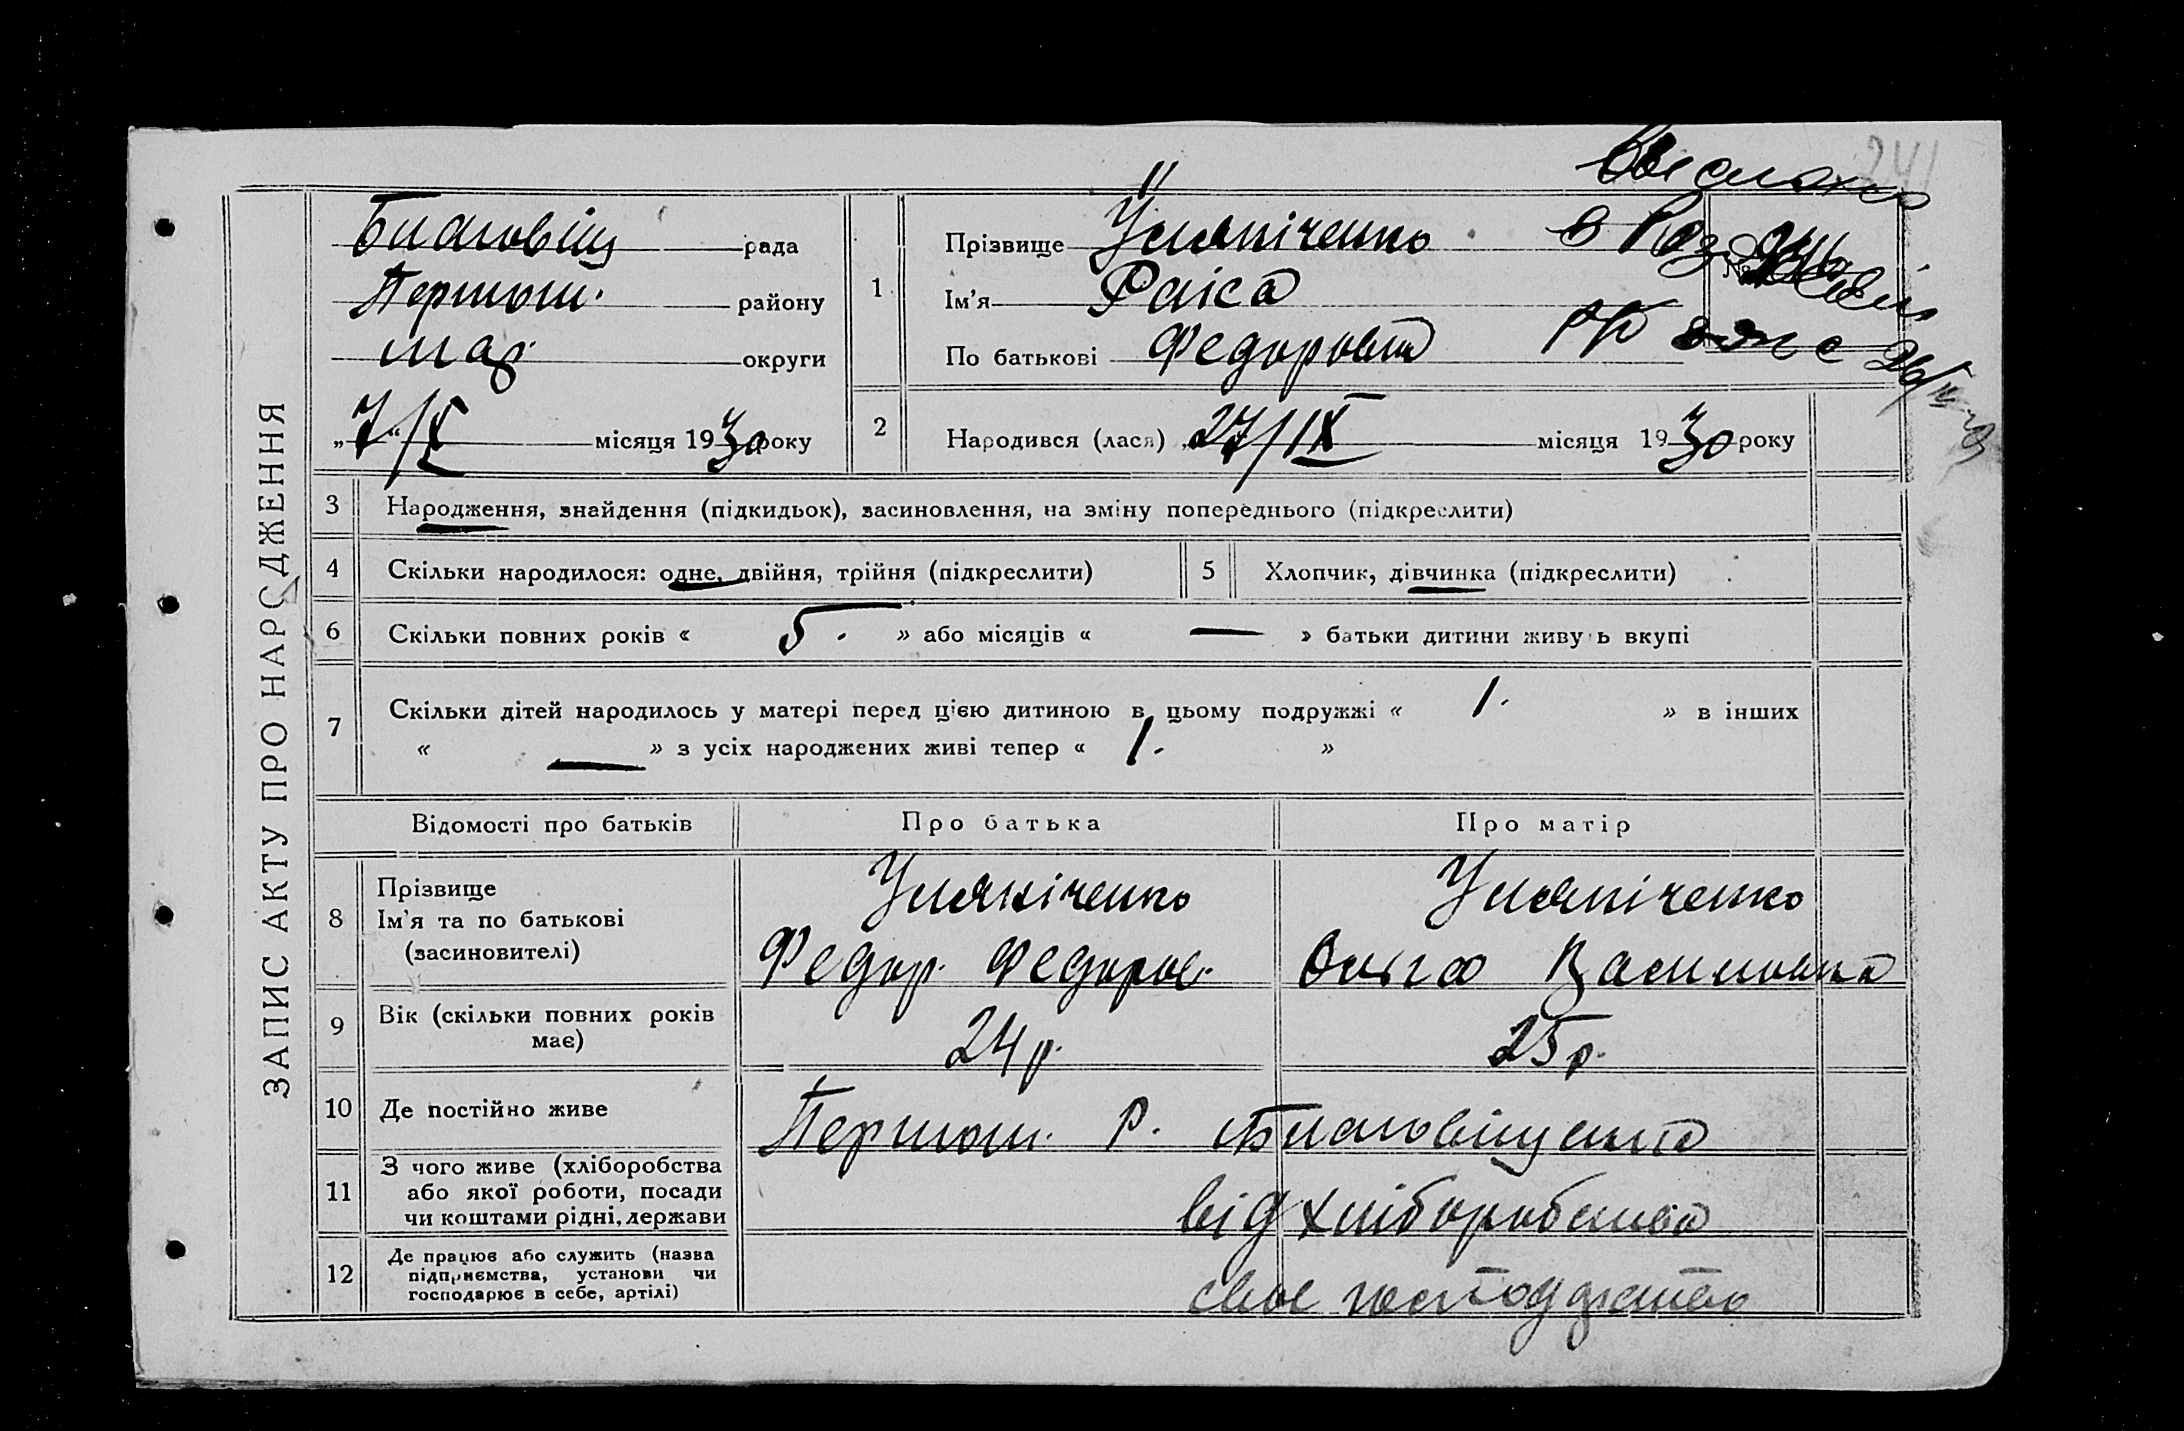 241
Выслано
ЗАПИС АКТУ ПРО НАРОДЖЕННЯ
рада
Першот. району
Мар. округи
„7“/X місяця 1930 року
1
Прізвище
Ім’я Раіса
По батькові Федоровна
№
2 Народився (лася) „27/IX місяця 1930 року
3 Народження, знайдення (підкидьок), засиновлення, на зміну попереднього (підкреслити)
4 Скільки народилося: одне, двійня, трійня (підкреслити)
5 Хлопчик, дівчинка (підкреслити)
6 Скільки повних років « 5. » або місяців « — » батьки дитини живуть вкупі
7 Скільки дітей народилось у матері перед цією дитиною в цьому подружжі « 1. » в інших
« — » з усіх народжених живі тепер « 1. »
Відомості про батьків Про батька Про матір
8 Прізвище
Ім’я та по батькові
(засиновителі)
Федор. Федоров.
Ольга Василовна
9 Вік (скільки повних років
має)
24 р.
25 р.
10 Де постійно живе
Першот. Р.
11 З чого живе (хліборобства
або якої роботи, посади
чи коштами рідні, держави
від хліборобства
12 Де працює або служить (назва
підприємства, установи чи
господарює в себе, артілі)
свое господдрство